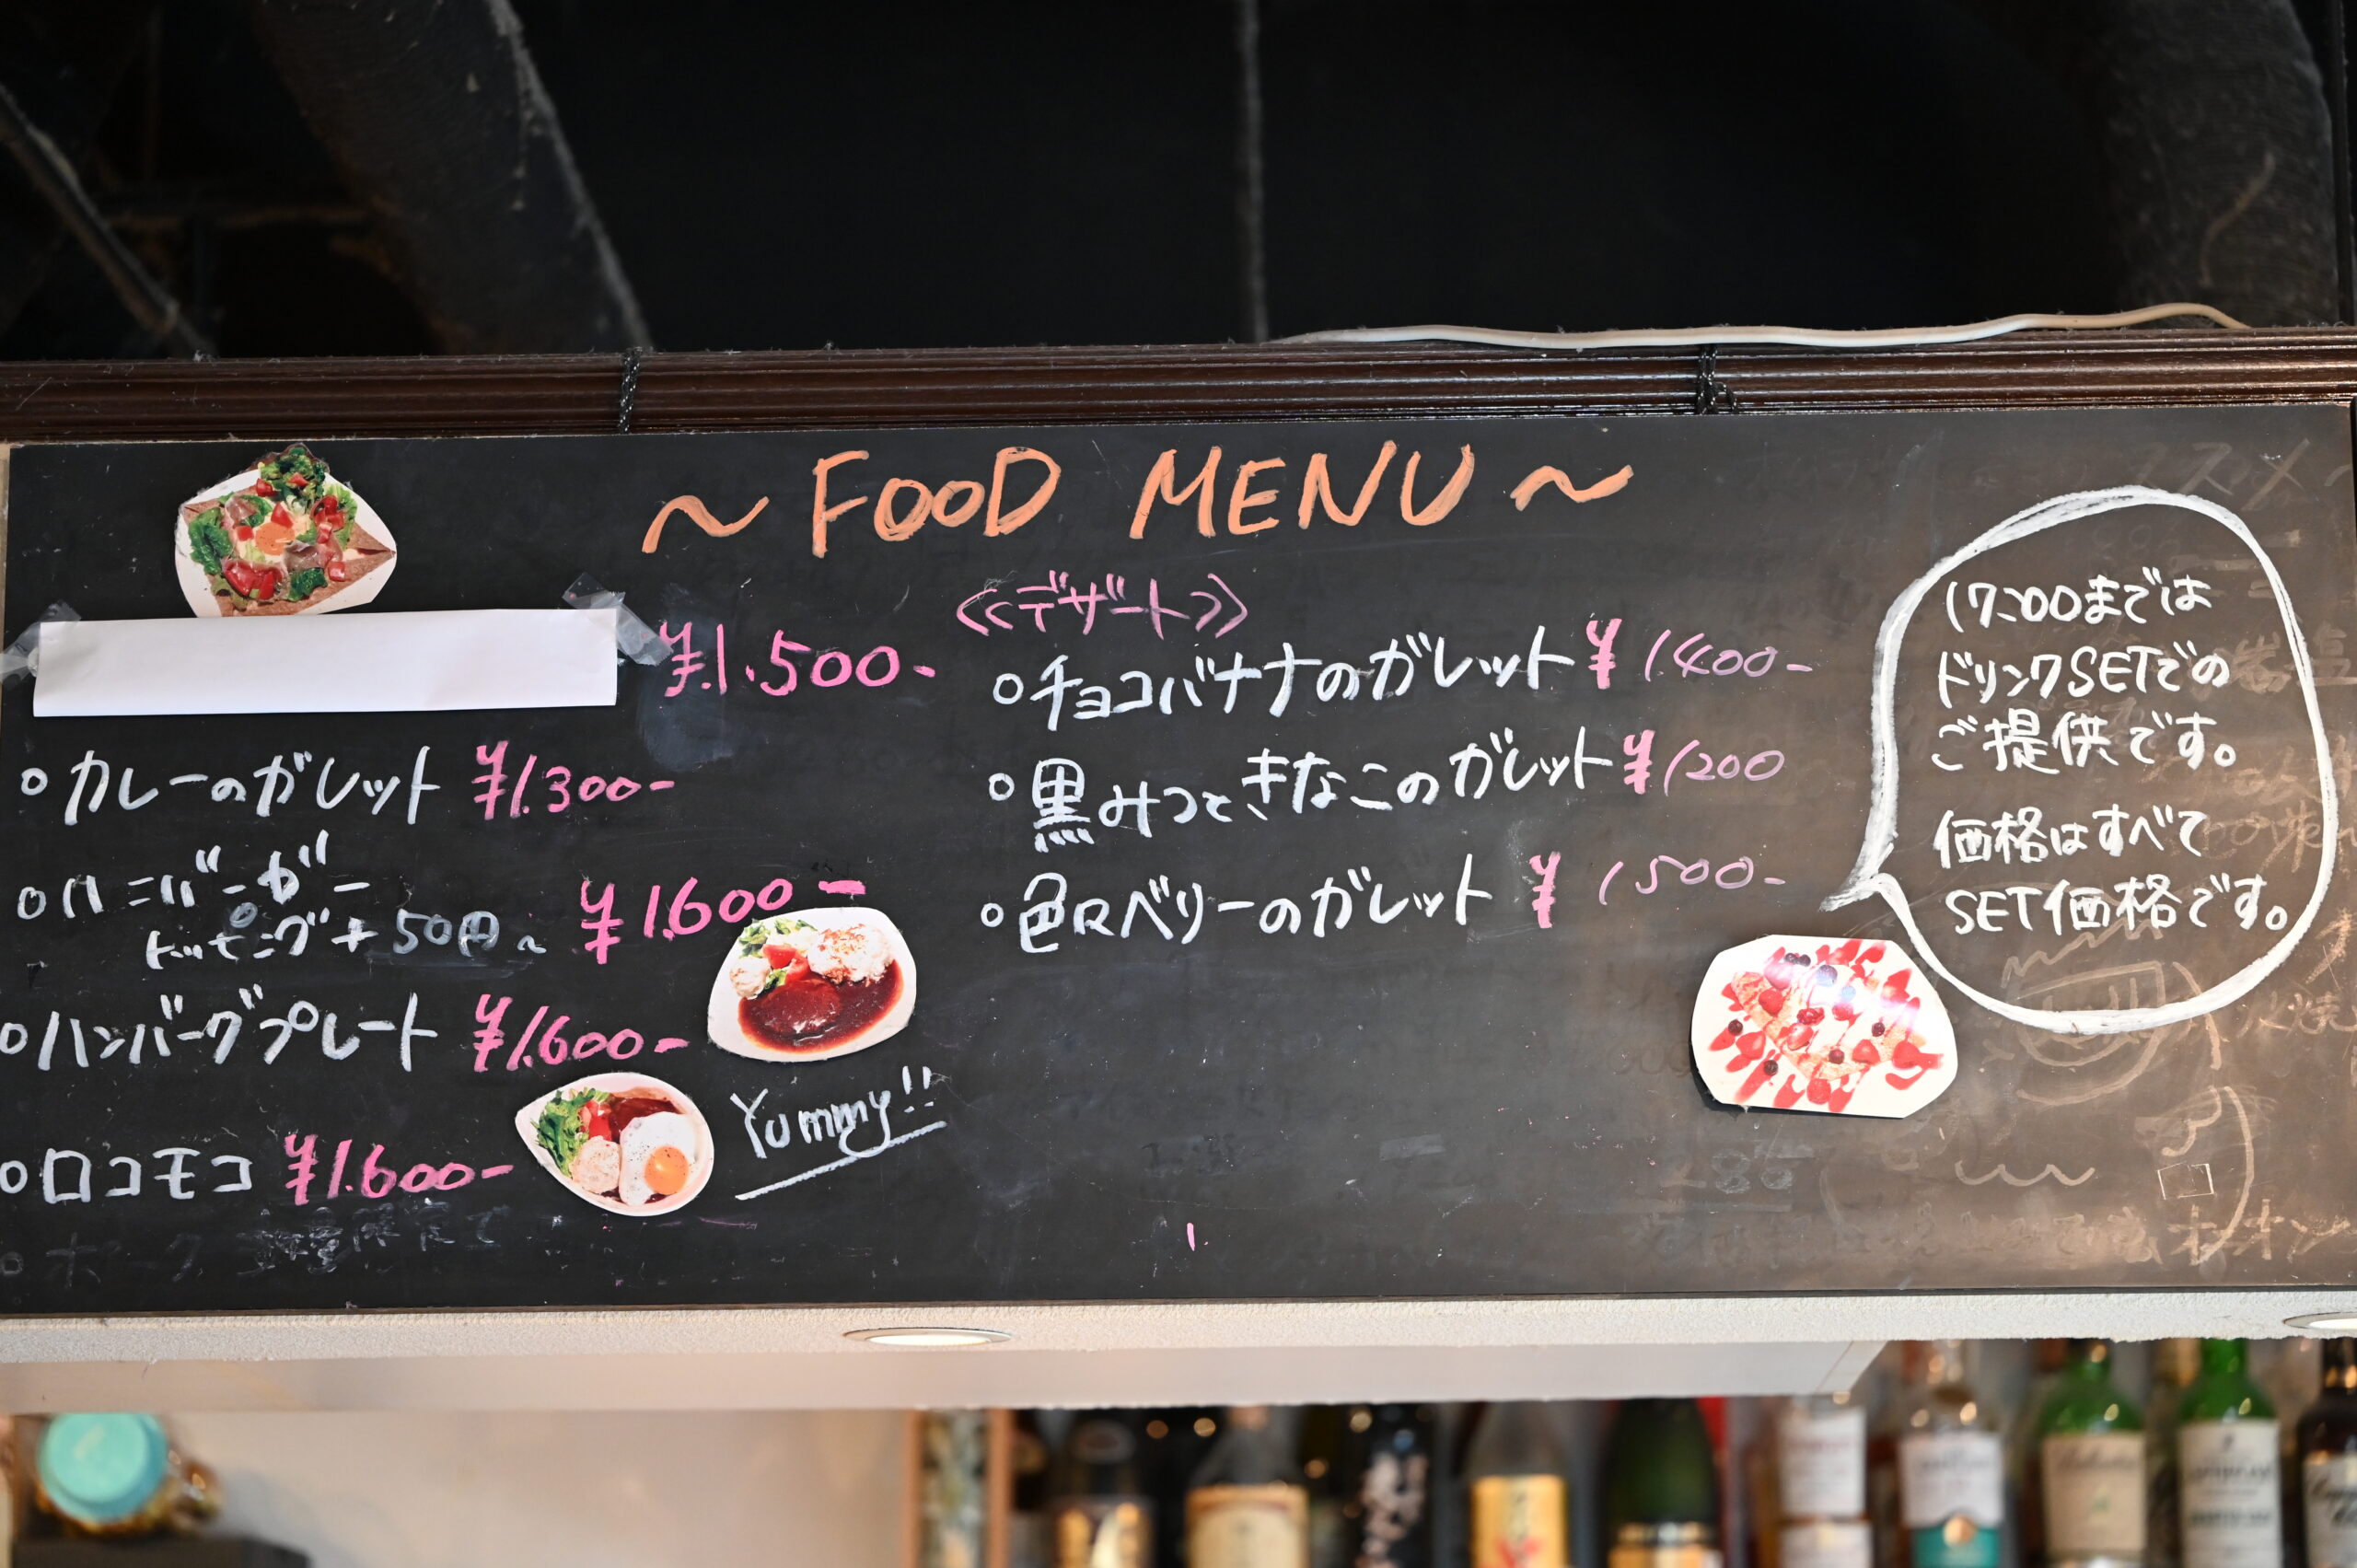 ~ FOOD MENU ~
¥1.500-
○カレーのガレット ¥1.300-
○ハニバーガー ¥1.600-
トッピング+50円~
○ハンバーグプレート ¥1.600-
○ロコモコ ¥1.600-
Yummy!!
《デザート》
○チョコバナナのガレット ¥1400-
○黒みつときなこのガレット ¥1200
○色々ベリーのガレット ¥1500-
17:00までは
ドリンクSETでの
ご提供です。
価格はすべて
SET価格です。